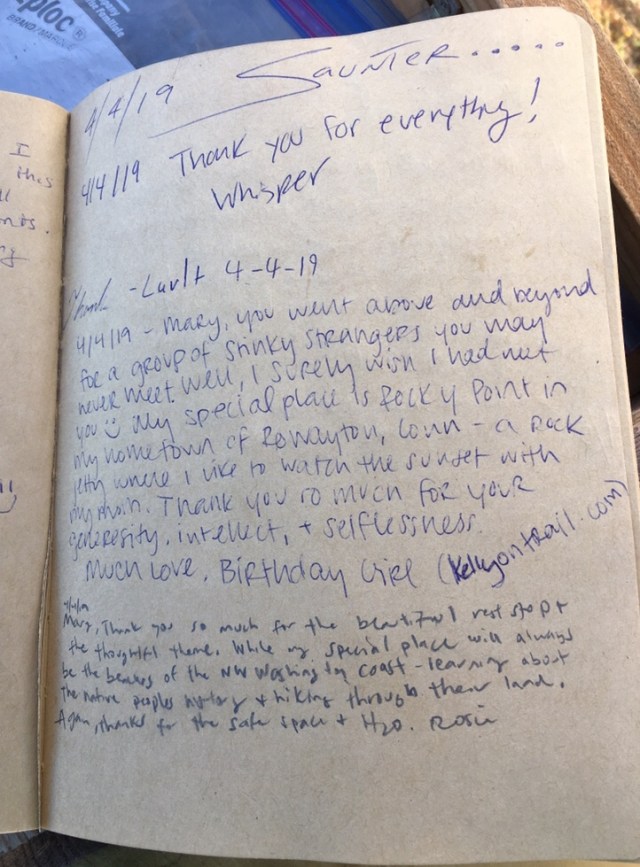 ploc
BRAND/MARQUE
I
this
nts.
4/4/19 SAUNTER.....
4/4/19 Thank you for everything!
Whisper
Thank - Lav/t 4-4-19
4/4/19 - Mary, you went above and beyond
for a group of stinky strangers you may
never meet. Well, I surely wish I had met
you My special place is Rocky Point in
my hometown of Rowayton, Conn - a rock
jetty where I like to watch the sunset with
my mom. Thank you so much for your
generosity, intellect, + selflessness.
Much love, Birthday Girl (kellyontrail.com)
4/4/19
Mary, Thank you so much for the beautiful rest stop +
the thoughtful theme. While my special place will always
be the beaches of the NW Washington coast - learning about
the native peoples history + hiking through their land.
Again, thanks for the safe space + H2O. Rosie